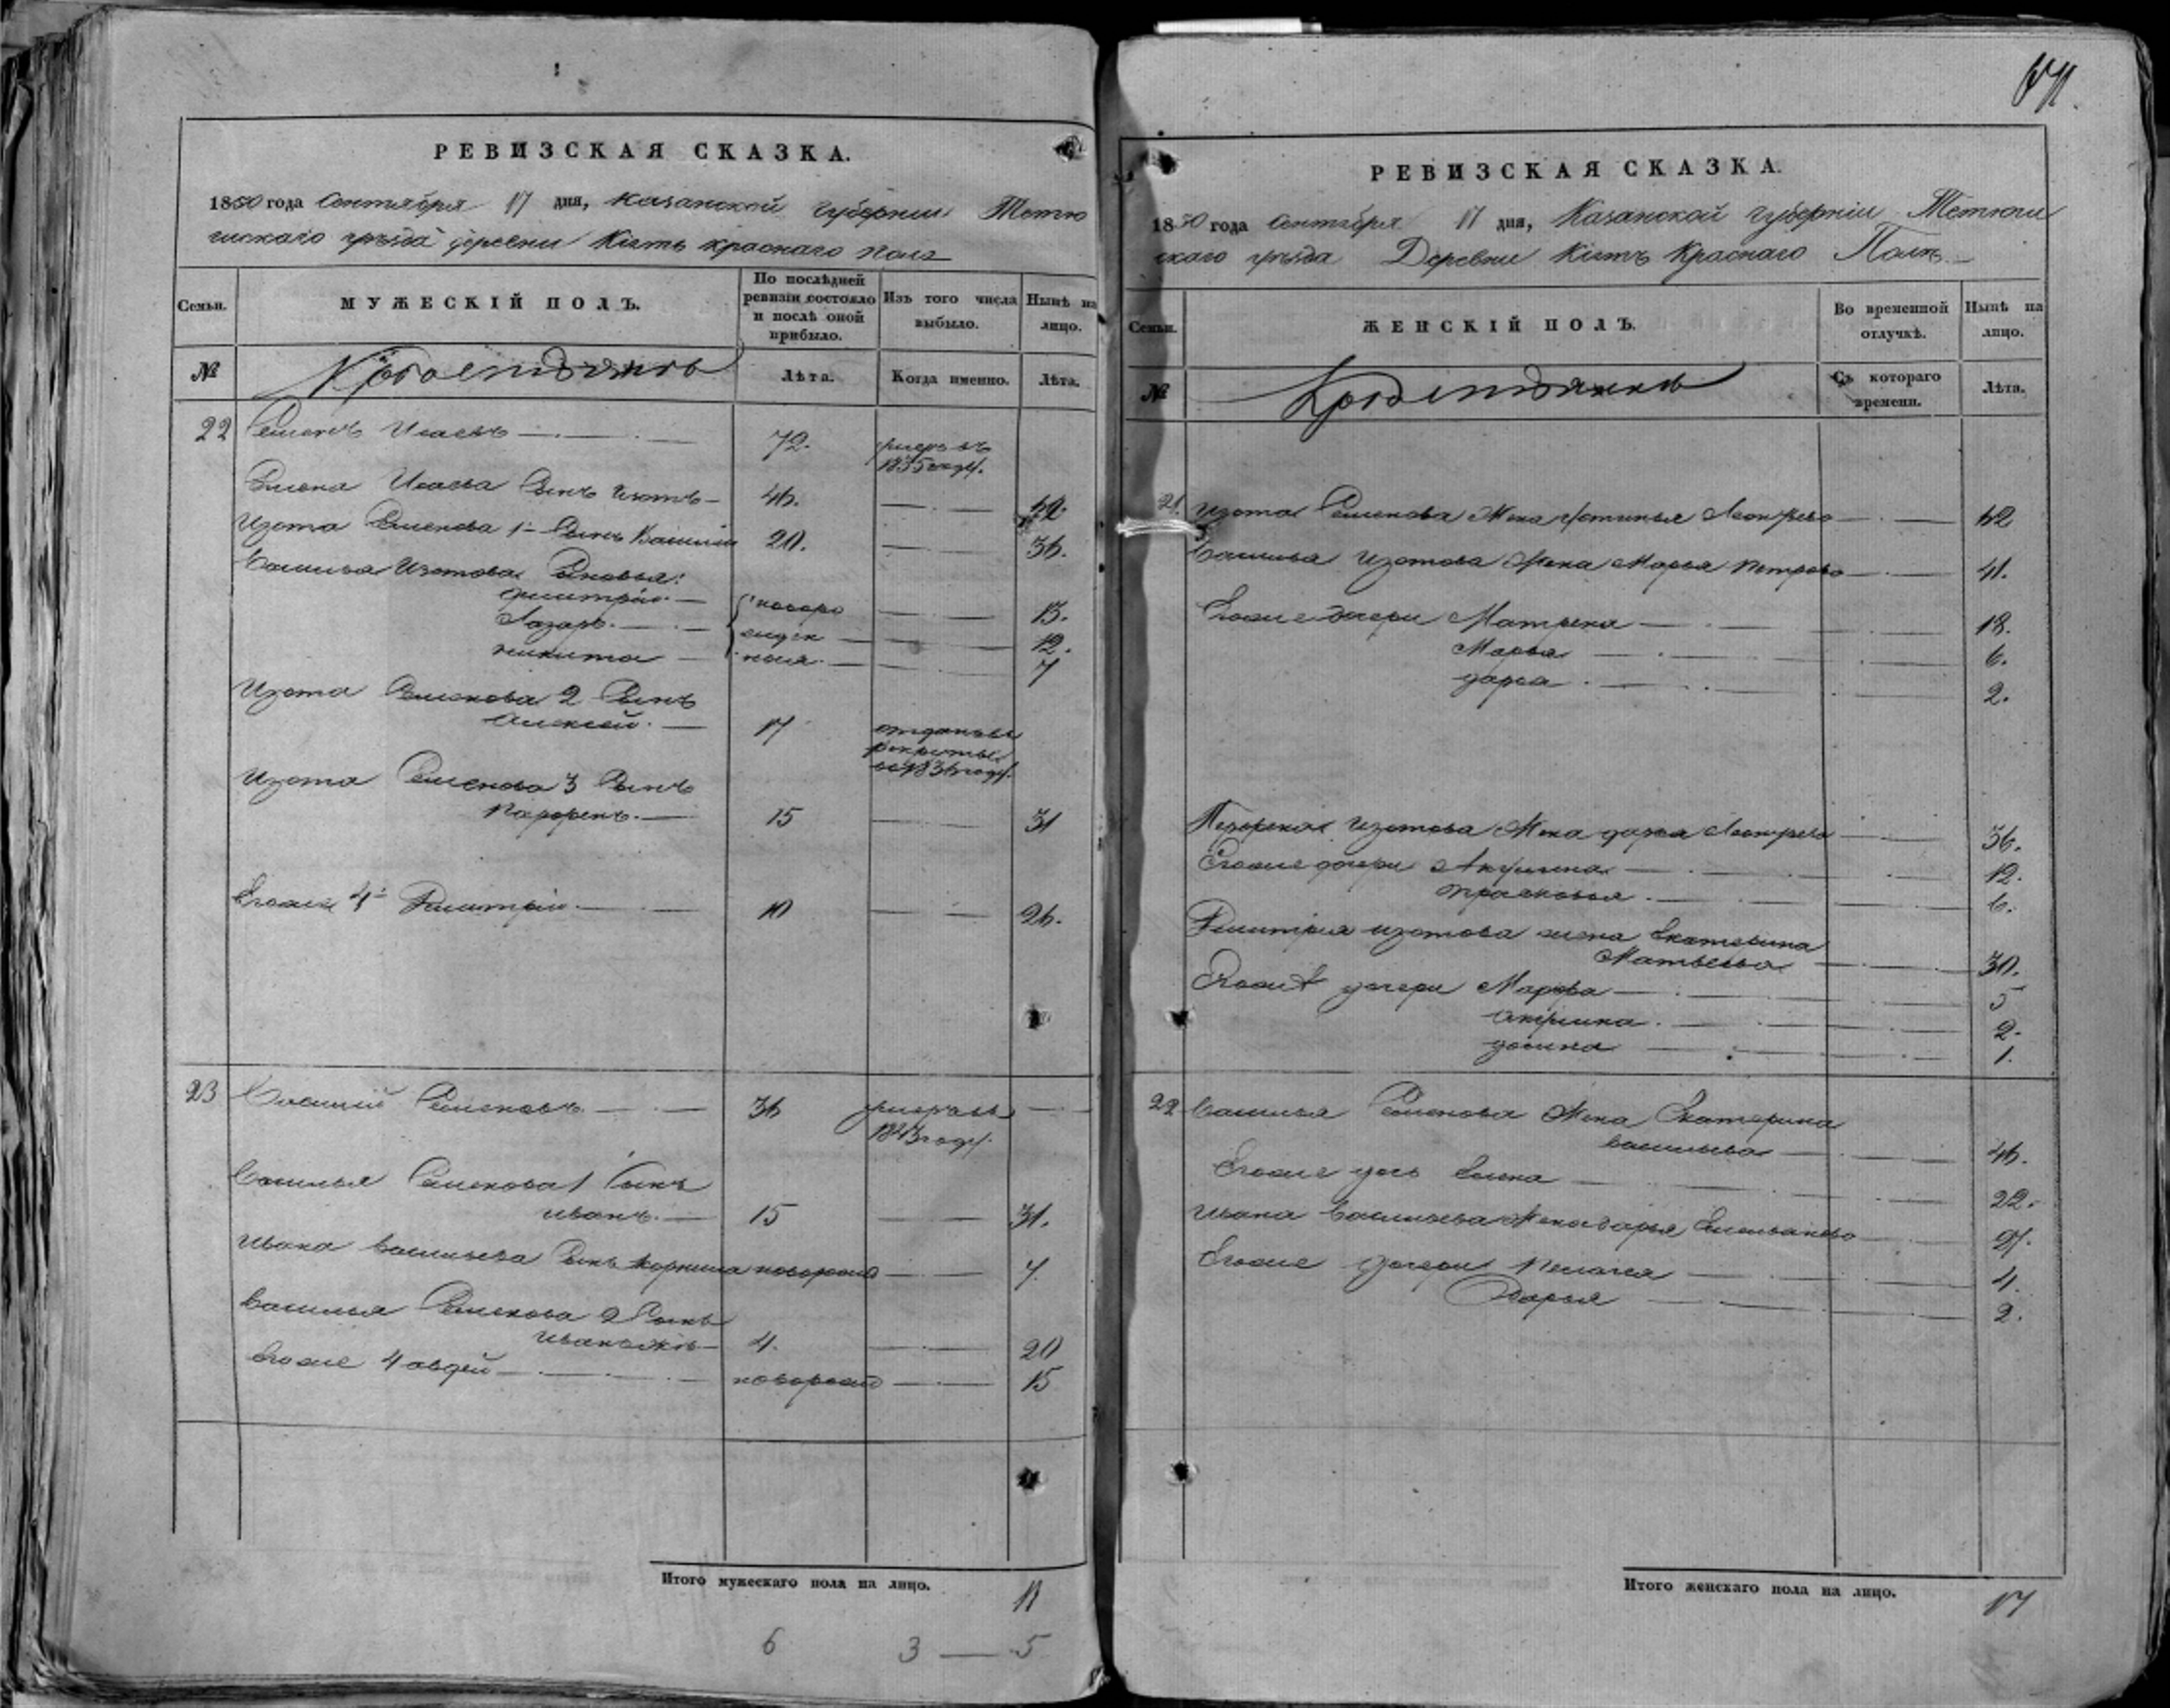 РЕВИЗСКАЯ СКАЗКА.
1850 года Сентября 17 дня, Казанской губернии Тетю
шскаго уѣзда деревни
По послѣдней ревизіи состояло и послѣ оной прибыло.
Изъ того числа выбыло.
Нынѣ на лицо.
Семьи.
МУЖЕСКІЙ ПОЛЪ.
№
Лѣта.
Когда именно.
Лѣта.
22 Семенъ Исаевъ 72. умеръ въ
1835 году.
Семена Исаева Сынъ Изотъ 46. 62.
Изота Семенова 1й Сынъ Василій 20. 36.
Василья Изотова Сыновья:
Дмитрій новоро 15.
Лазарь жден 12.
Никита ныя 7
Изота Семенова 2 Сынъ
Алексей 17 отданъ въ
рекруты
въ 1836 году.
Изота Семенова 3 Сынъ
Парфенъ 15 31
Егоже 4й Дмитрій 10 26.
23 Василий Семеновъ 36 умеръ въ
1843 году.
Василья Семенова 1 Сынъ
Иванъ 15 31.
Ивана Васильева Сынъ новорожд 7
Василья Семенова 2 Сынъ
Иванъ 4. 20
Егоже 4 Авдей новорожд 15
Итого мужескаго пола на лицо. 11
6 3 — 5
РЕВИЗСКАЯ СКАЗКА.
1850 года Сентября 17 дня, Казанской губерніи Тетюш
скаго уѣзда Деревни
Семьи.
ЖЕНСКІЙ ПОЛЪ.
Во временной отлучкѣ.
Нынѣ на лицо.
№
Съ котораго времени.
Лѣта.
Изота Семенова Жена Фотинья 62
Василья Изотова Жена Марья Петрова 41.
Егоже дочери Матрена 18.
Марья 6.
Дарья 2.
Парфена Изотова Жена Дарья 36.
Егоже дочери Акулина 12.
Прасковья 6.
Дмитрія Изотова жена Екатерина
Матвеева 30.
Егоже дочери Марфа 5
Акулина 2.
1.
22 Василья Семенова Жена Екатерина
Васильева 46.
Егоже дочь Елена 22.
Ивана Васильева Жена Дарья Емельянова 27.
Егоже дочери Пелагея 4.
Дарья 2.
Итого женскаго пола на лицо. 17